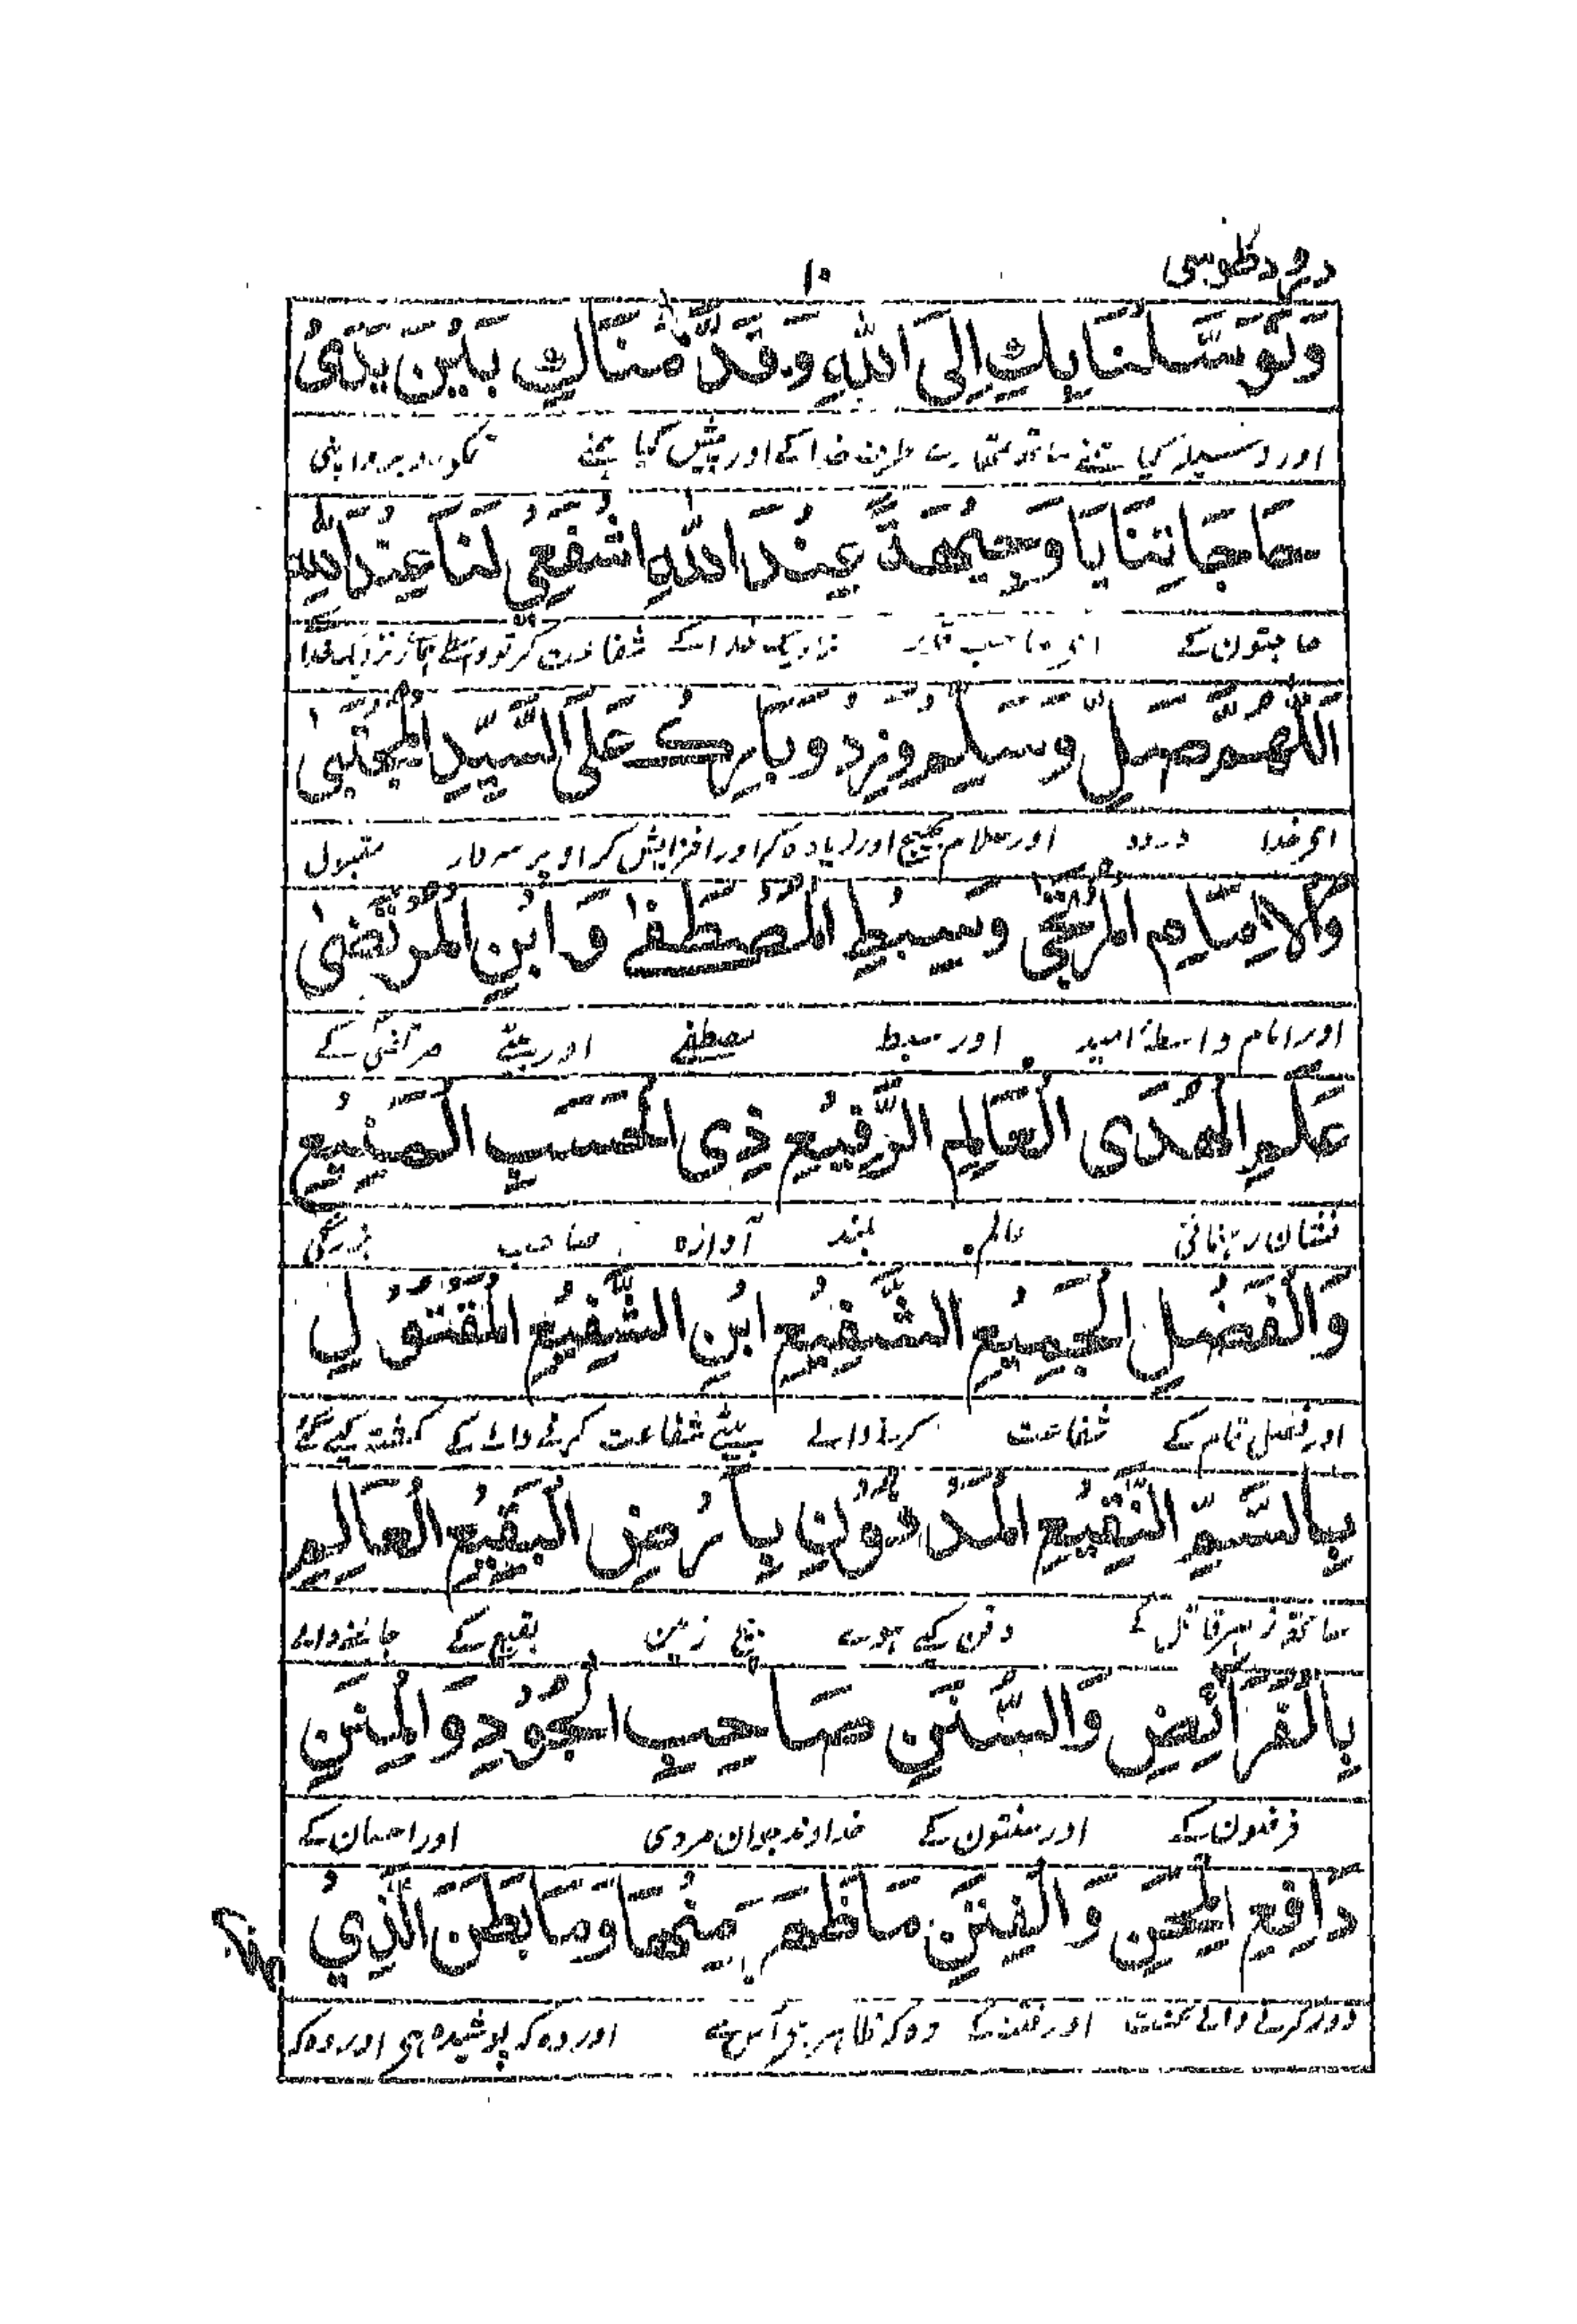 درود طوسی
۱۰
وَتَوَسَّلْنَا بِكِ اِلَى اللّٰهِ وَقَدَّمْنَاكِ بَيْنَ يَدَيْ
اور وسیلہ کیا ہمنے ساتھ تمہارے طرف خدا کے اور پیش کیا ہمنے تمکو روبرو اپنی
حَاجَاتِنَا يَا وَجِيْهَةً عِنْدَ اللّٰهِ اشْفَعِيْ لَنَا عِنْدَ اللّٰهِ
حاجتون کے اے صاحب قدر نزدیک خدا کے شفاعت کر تو واسطے ہمارے نزدیک خدا
اَللّٰهُمَّ صَلِّ وَسَلِّمْ وَزِدْ وَبَارِكْ عَلَى السَّيِّدِ الْمُجْتَبٰى
اے خدا درود اور سلام بھیج اور زیادہ کر اور افزایش کر اوپر سردار مقبول
وَالْاِمَامِ الْمُرْتَجٰى وَسِبْطِ الْمُصْطَفٰے وَابْنِ الْمُرْتَضٰى
اور امام واسطۂ امید اور سبط مصطفے اور بیٹے مرتضی کے
عَلَمِ الْهُدَى الْعَالِمِ الرَّفِيْعِ ذِي الْحَسَبِ الْمَنِيْعِ
نشان رہنمائی عالم بلند آوازہ صاحب بزرگی
وَالْفَضْلِ الْجَمِيْعِ الشَّفِيْعِ ابْنِ الشَّفِيْعِ الْمَقْتُوْلِ
اور فضل تمام کے شفاعت کرنے والے بیٹے شفاعت کرنے والے کے کشتہ کیے گئے
بِالسَّمِّ النَّقِيْعِ الْمَدْفُوْنِ بِاَرْضِ الْبَقِيْعِ الْعَالِمِ
ساتھ زہر قاتل کے دفن کیے ہوے بیچ زمین بقیع کے جاننے والے
بِالْفَرَائِضِ وَالسُّنَنِ صَاحِبِ الْجُوْدِ وَالْمِنَنِ
فرضون کے اور سنتون کے خداوند جوان مردی اور احسان کے
دَافِعِ الْمِحَنِ وَالْفِتَنِ مَا ظَهَرَ مِنْهَا وَمَا بَطَنَ الَّذِيْ
دور کرنے والے محنت اور فتنہ کے وہ کہ ظاہر ہی اس سے اور وہ کہ پوشیدہ ہی اور وہ کہ